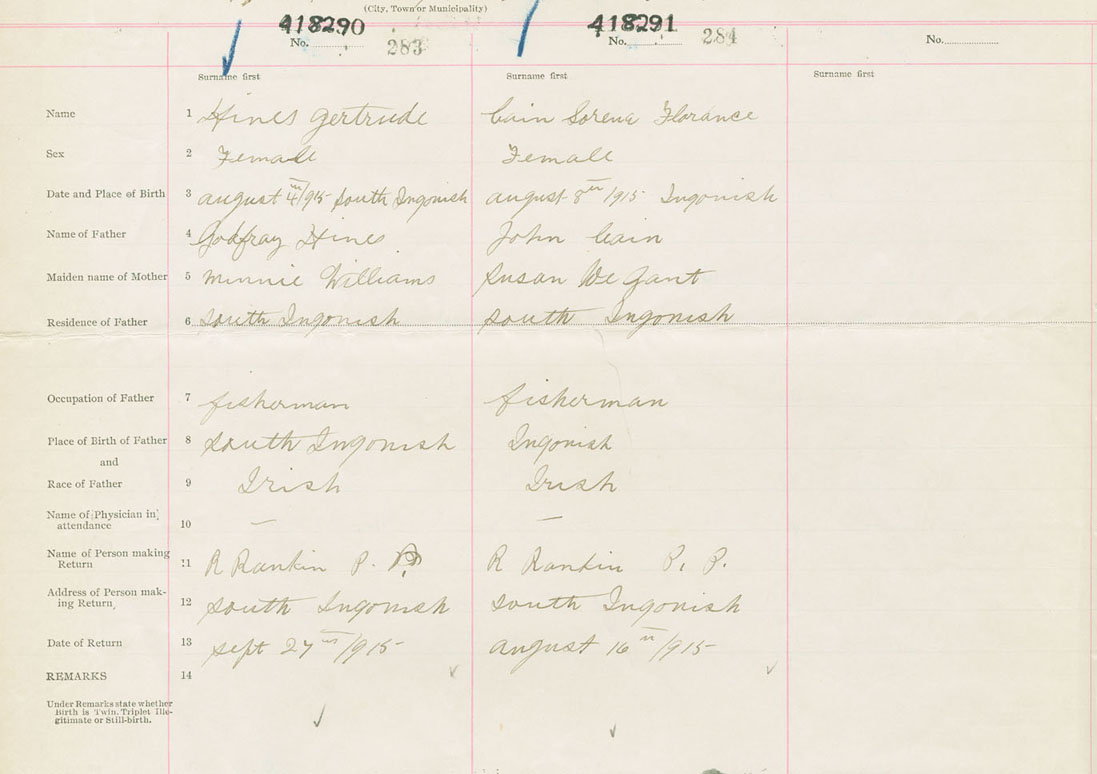 (City, Town or Municipality)
418290 418291
No. 283 No. 284 No.
Surname first Surname first Surname first
Name 1 Hines Gertrude Cain Sorena Florance
Sex 2 Female Female
Date and Place of Birth 3 august 4th/915 South Ingonish august 8th/915 Ingonish
Name of Father 4 Godfray Hines John Cain
Maiden name of Mother 5 Minnie Williams Susan We Gant
Residence of Father 6 South Ingonish South Ingonish
Occupation of Father 7 fisherman fisherman
Place of Birth of Father 8 South Ingonish Ingonish
and
Race of Father 9 Irish Irish
Name of [Physician in]
attendance 10 — —
Name of Person making
Return 11 R Rankin P. P. R Rankin P. P.
Address of Person mak-
ing Return, 12 South Ingonish South Ingonish
Date of Return 13 sept 27th/915 august 16th/915
REMARKS 14
Under Remarks state whether
Birth is Twin, Triplet Ille-
gitimate or Still-birth.